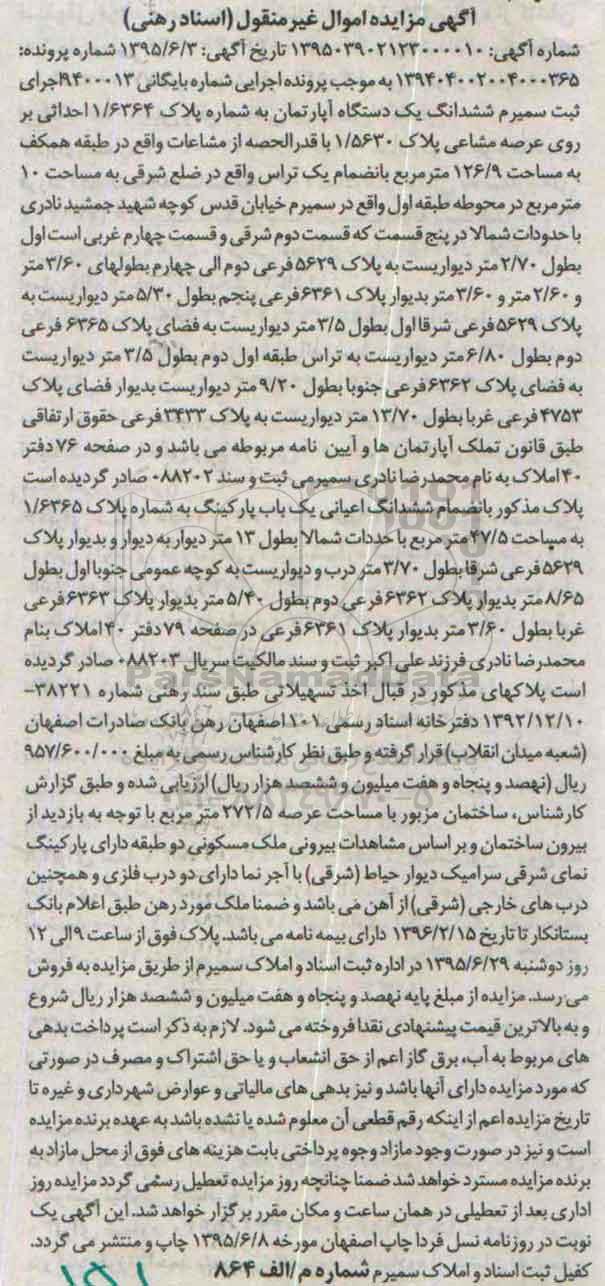 آگهی مزایده اموال غیرمنقول (اسناد رهنی)
شماره آگهی: ۱۳۹۵۰۳۹۰۲۱۲۳۰۰۰۰۱۰ تاریخ آگهی: ۱۳۹۵/۶/۳ شماره پرونده:
۱۳۹۴۰۴۰۰۲۰۰۴۰۰۰۳۶۵ به موجب پرونده اجرایی شماره بایگانی ۹۴۰۰۰۱۳اجرای
ثبت سمیرم ششدانگ یک دستگاه آپارتمان به شماره پلاک ۱/۶۳۶۴ احداثی بر
روی عرصه مشاعی پلاک ۱/۵۶۳۰ با قدرالحصه از مشاعات واقع در طبقه همکف
به مساحت ۱۲۶/۹ مترمربع بانضمام یک تراس واقع در ضلع شرقی به مساحت ۱۰
مترمربع در محوطه طبقه اول واقع در سمیرم خیابان قدس کوچه شهید جمشید نادری
با حدودات شمالا در پنج قسمت که قسمت دوم شرقی و قسمت چهارم غربی است اول
بطول ۲/۷۰ متر دیواریست به پلاک ۵۶۲۹ فرعی دوم الی چهارم بطولهای ۳/۶۰ متر
و ۲/۶۰ متر و ۳/۶۰ متر بدیوار پلاک ۶۳۶۱فرعی پنجم بطول ۵/۳۰ متر دیواریست به
پلاک ۵۶۲۹ فرعی شرقا اول بطول ۳/۵ متر دیواریست به فضای پلاک ۶۳۶۵ فرعی
دوم بطول ۶/۸۰ متر دیواریست به تراس طبقه اول دوم بطول ۳/۵ متر دیواریست
به فضای پلاک ۶۳۶۲ فرعی جنوبا بطول ۹/۲۰ متر دیواریست بدیوار فضای پلاک
۴۷۵۳ فرعی غربا بطول ۱۳/۷۰ متر دیواریست به پلاک ۳۴۳۳ فرعی حقوق ارتفاقی
طبق قانون تملک آپارتمان ها و آیین نامه مربوطه می باشد و در صفحه ۷۶ دفتر
۴۰ املاک به نام محمدرضا نادری سمیرمی ثبت و سند ۰۸۸۲۰۲ صادر گردیده است
پلاک مذکور بانضمام ششدانگ اعیانی یک باب پارکینگ به شماره پلاک ۱/۶۳۶۵
به مساحت ۴۷/۵ متر مربع با حددات شمالا بطول ۱۳ متر دیوار به دیوار و بدیوار پلاک
۵۶۲۹ فرعی شرقا بطول ۳/۷۰ متر درب و دیواریست به کوچه عمومی جنوبا اول بطول
۸/۶۵ متر بدیوار پلاک ۶۳۶۲ فرعی دوم بطول ۵/۴۰ متر بدیوار پلاک ۶۳۶۳ فرعی
غربا بطول ۳/۶۰ متر بدیوار پلاک ۶۳۶۱ فرعی در صفحه ۷۹ دفتر ۴۰ املاک بنام
محمدرضا نادری فرزند علی اکبر ثبت و سند مالکیت سریال ۰۸۸۲۰۳ صادر گردیده
است پلاکهای مذکور در قبال اخذ تسهیلاتی طبق سند رهنی شماره ۳۸۲۲۱-
۱۳۹۲/۱۲/۱۰ دفترخانه اسناد رسمی ۱۰۱ اصفهان رهن بانک صادرات اصفهان
(شعبه میدان انقلاب) قرار گرفته و طبق نظر کارشناس رسمی به مبلغ ۹۵۷/۶۰۰/۰۰۰
ریال (نهصد و پنجاه و هفت میلیون و ششصد هزار ریال) ارزیابی شده و طبق گزارش
کارشناس، ساختمان مزبور با مساحت عرصه ۲۷۲/۵ متر مربع با توجه به بازدید از
بیرون ساختمان و بر اساس مشاهدات بیرونی ملک مسکونی دو طبقه دارای پارکینگ
نمای شرقی سرامیک دیوار حیاط (شرقی) با آجر نما دارای دو درب فلزی و همچنین
درب های خارجی (شرقی) از آهن می باشد و ضمنا ملک مورد رهن طبق اعلام بانک
بستانکار تا تاریخ ۱۳۹۶/۲/۱۵ دارای بیمه نامه می باشد. پلاک فوق از ساعت ۹ الی ۱۲
روز دوشنبه ۱۳۹۵/۶/۲۹ در اداره ثبت اسناد و املاک سمیرم از طریق مزایده به فروش
می رسد. مزایده از مبلغ پایه نهصد و پنجاه و هفت میلیون و ششصد هزار ریال شروع
و به بالاترین قیمت پیشنهادی نقدا فروخته می شود. لازم به ذکر است پرداخت بدهی
های مربوط به آب، برق گاز اعم از حق انشعاب و یا حق اشتراک و مصرف در صورتی
که مورد مزایده دارای آنها باشد و نیز بدهی های مالیاتی و عوارض شهرداری و غیره تا
تاریخ مزایده اعم از اینکه رقم قطعی آن معلوم شده یا نشده باشد به عهده برنده مزایده
است و نیز در صورت وجود مازاد وجوه پرداختی بابت هزینه های فوق از محل مازاد به
برنده مزایده مسترد خواهد شد ضمنا چنانچه روز مزایده تعطیل رسمی گردد مزایده روز
اداری بعد از تعطیلی در همان ساعت و مکان مقرر برگزار خواهد شد. این آگهی یک
نوبت در روزنامه نسل فردا چاپ اصفهان مورخه ۱۳۹۵/۶/۸ چاپ و منتشر می گردد.
کفیل ثبت اسناد و املاک سمیرم شماره م/الف ۸۶۴
ParsNamadData